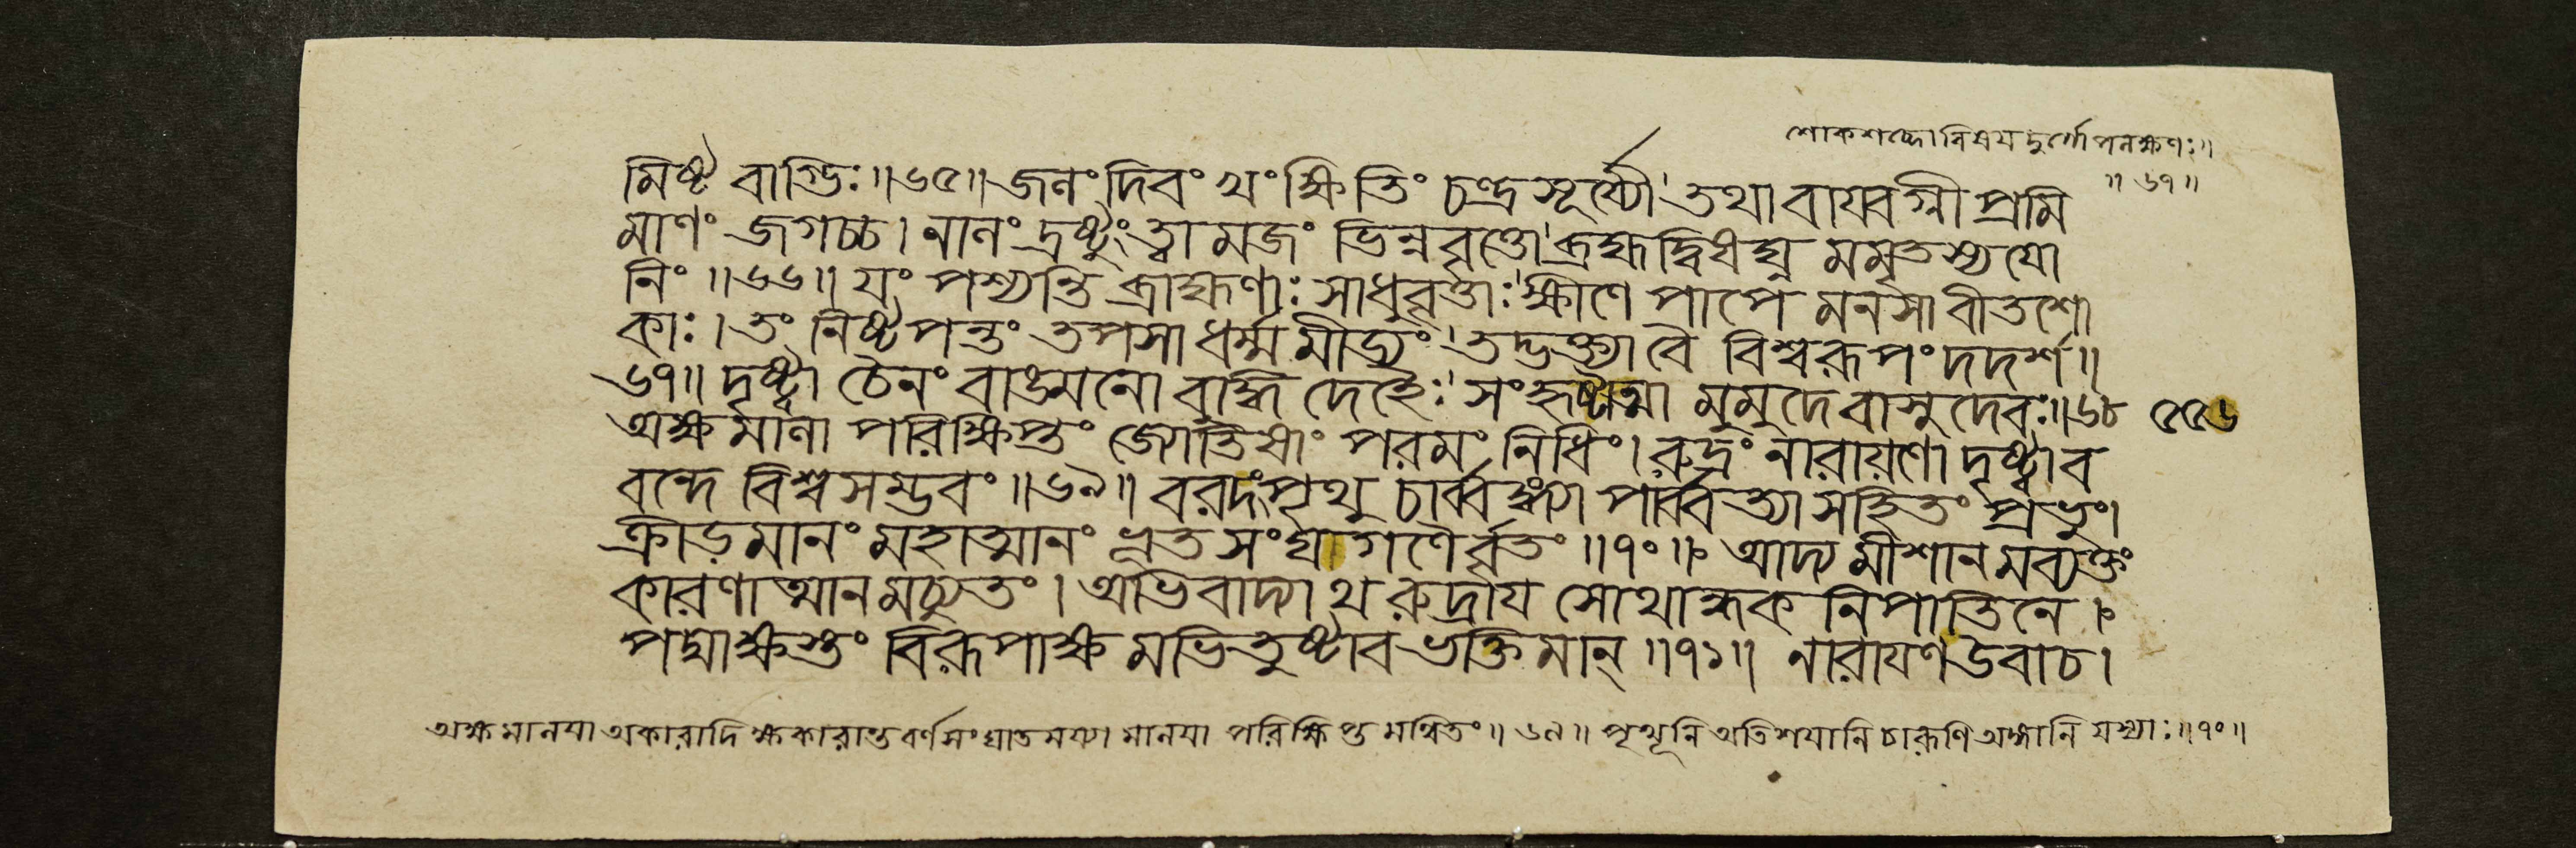 শোকশব্দো বিষয়দুর্গোপলক্ষণঃ॥
॥৬৭॥
মিষ্টৈ বাগ্ভিঃ॥৬৫॥জলং দিবং খং ক্ষিতিং চন্দ্রসূর্য্যৌ তথা বায্বগ্নী প্রমি
মাণং জগচ্চ। নালং দ্রষ্টুং ত্বামজং ভিন্নবৃত্তো ব্রহ্মদ্বিষঘ্ন মমৃতস্য যো
নিং॥৬৬॥যং পশ্যন্তি ব্রাহ্মণাঃ সাধুবৃত্তাঃ ক্ষীণে পাপে মনসা বীতশো
কাঃ। তং নিষ্টপন্তং তপসা ধর্ম্মমীড্যং তদ্ভক্ত্যা বৈ বিশ্বরূপং দদর্শ॥
৬৭॥ দৃষ্ট্বা চৈনং বাঙ্মনো বুদ্ধি দেহৈঃ সংহৃষ্টাত্মা মুমুদে বাসুদেবঃ॥৬৮
অক্ষমালা পরিক্ষিপ্তং জ্যোতিষাং পরমং নিধিং। রুদ্রং নারায়ণো দৃষ্ট্বা ব
৫৫৬
বন্দে বিশ্বসম্ভবং॥৬৯॥ বরদং পৃথু চার্ব্বঙ্গ্যা পার্ব্বত্যা সহিতং প্রভুং।
ক্রীড়মানং মহাত্মানং ভূতসংঘগণৈর্বৃতং॥৭০॥ আদ্যমীশানমব্যক্তং
কারণাত্মানমচ্যুতং। অভিবাদ্যাথ রুদ্রায় সোথান্ধক নিপাতিনে।
পদ্মাক্ষস্তং বিরূপাক্ষমভিতুষ্টাব ভক্তিমান্॥৭১॥ নারায়ণ উবাচ।
অক্ষমালয়া অকারাদি ক্ষকারান্ত বর্ণসংঘাতময্যা মালয়া পরিক্ষিপ্তমন্বিতং॥৬৯॥ পৃথূনি অতিশয়ানি চারূণি অঙ্গানি যস্যাঃ॥৭০॥